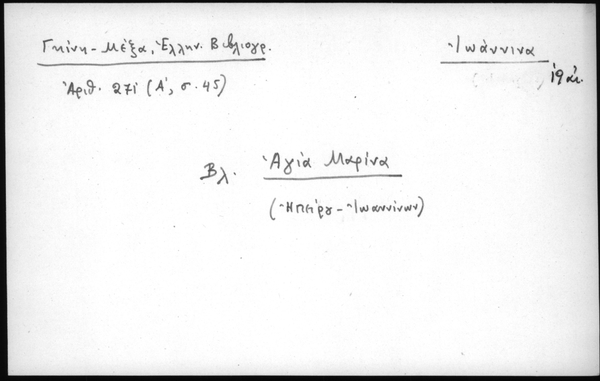 Γκίνη - Μέξα, Ἑλλην. Βιβλιογρ.
Ἰωάννινα
Ἀριθ. 271 (Α', σ. 45)
ΙΘ αἰ.
Βλ. Ἁγία Μαρίνα
(Ἠπείρου - Ἰωαννίνων)